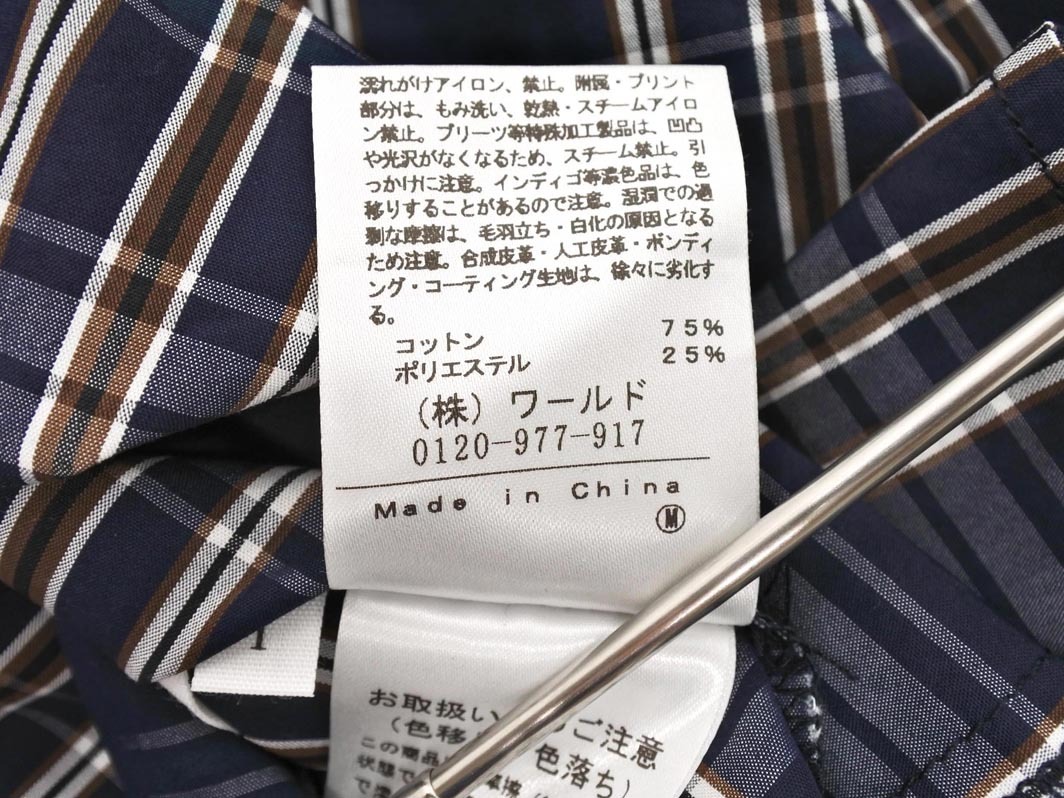 濡れがけアイロン、禁止。附属・プリント
部分は、もみ洗い、乾熱・スチームアイロ
ン禁止。プリーツ等特殊加工製品は、凹凸
や光沢がなくなるため、スチーム禁止。引
っかけに注意。インディゴ等濃色品は、色
移りすることがあるので注意。湿潤での過
剰な摩擦は、毛羽立ち・白化の原因となる
ため注意。合成皮革・人工皮革・ボンディ
ング・コーティング生地は、徐々に劣化す
る。
コットン 75%
ポリエステル 25%
(株) ワールド
0120-977-917
Made in China
M
1
お取扱い のご注意
(色移 色落ち)
この商品
状態で